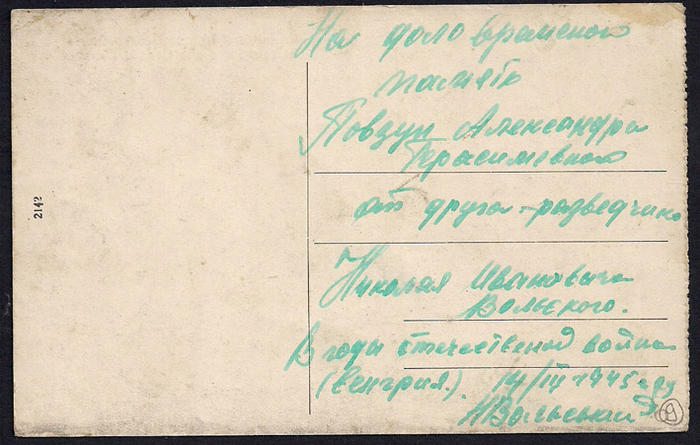 На долговременою
память
Повзун Александра
Герасимовна
от друга-разведчика
Николая Ивановича
Вольского.
В годы отечественой войны
(Венгрия). 14/III 1945 году
НВольський
2142